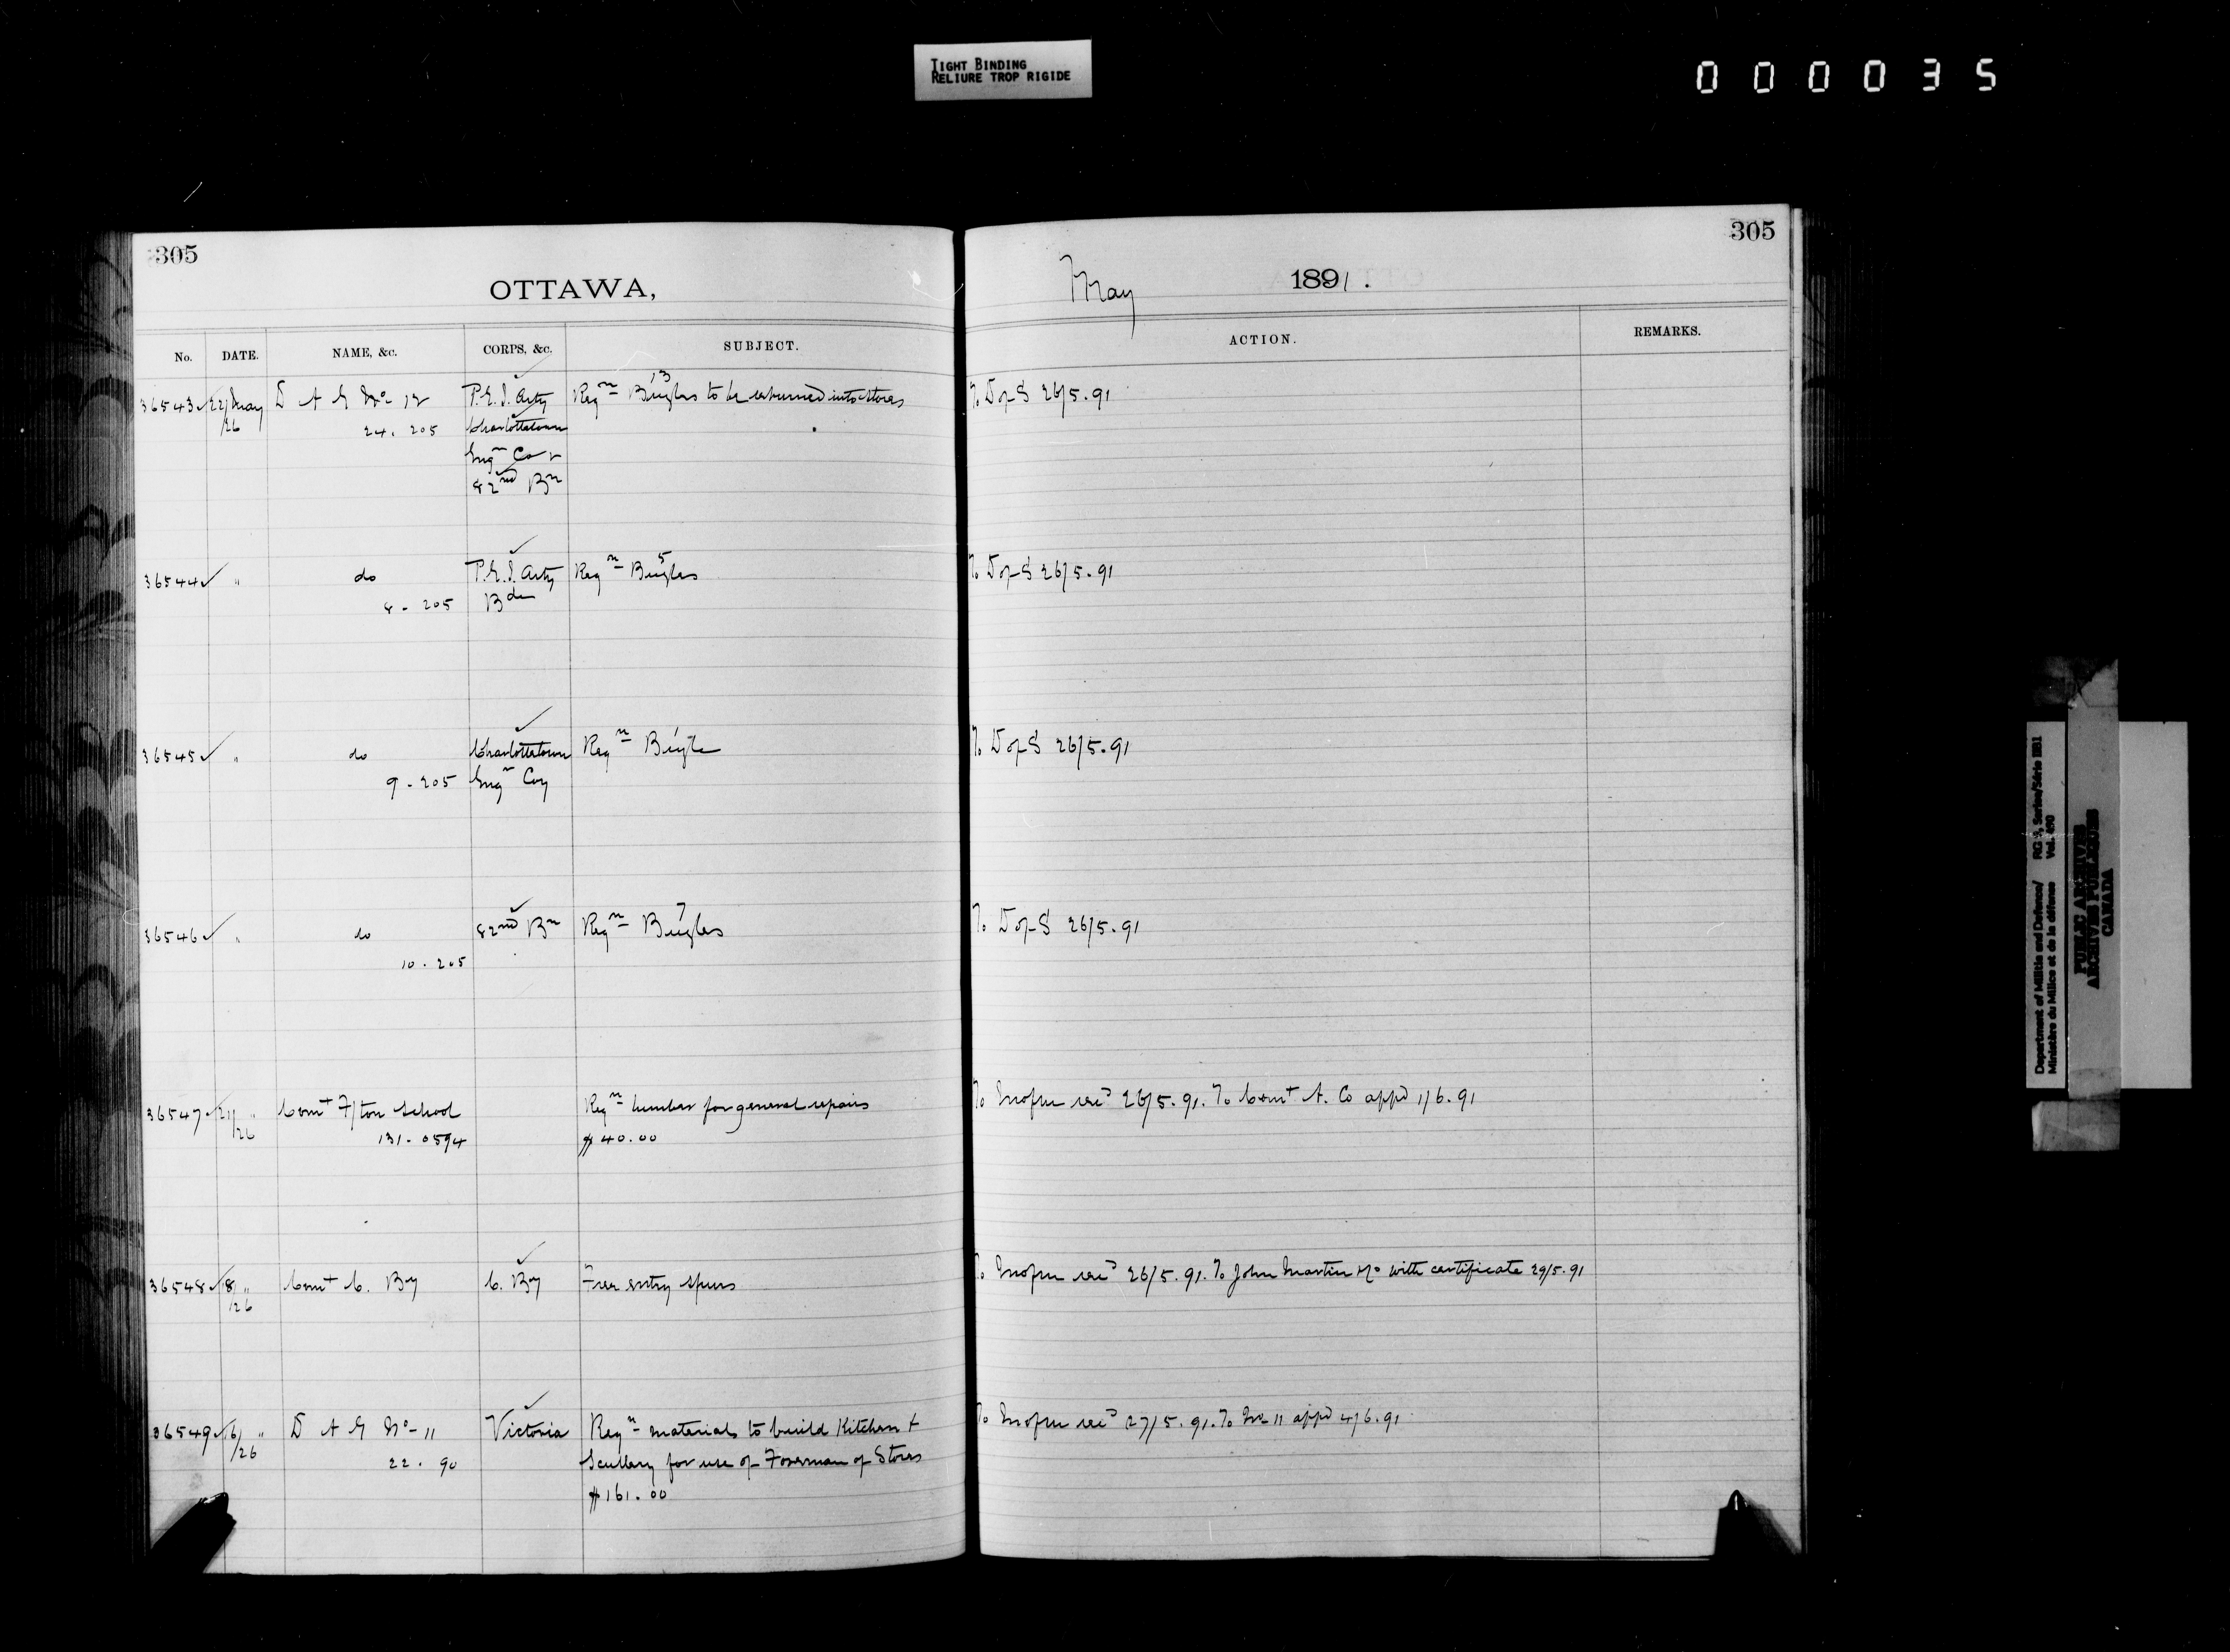 TIGHT BINDING
RELIURE TROP RIGIDE
000035
305
305
OTTAWA,
May 1891.
No. DATE. NAME, &c. CORPS, &c. SUBJECT. ACTION. REMARKS.
36543 22/May D A G No 12 P.E.I. Arty Reqn 13 Bugles to be returned into stores To D of S 26/5.91
/26 24. 205 Charlottetown
Engn Co &
82nd Bn
36544 " do P.E.I. Arty Reqn 5 Bugles To D of S 26/5.91
8 - 205 Bde
36545 " do Charlottetown Reqn Bugle To D of S 26/5.91
9 - 205 Engn Coy
36546 " do 82nd Bn Reqn 7 Bugles To D of S 26/5.91
10 - 205
36547 21/ " Comt F/ton School Reqn lumber for general repairs To Inofm recd 26/5.91. To Comt A. Co appd 1/6.91
/26 131-0594 $40.00
36548 8/ " Comt C. By C. By Free entry spurs To Inofm recd 26/5.91. To John Martin & Co with certificate 29/5.91
/26
36549 16/ " D A G No 11 Victoria Reqn materials to build Kitchen & To Inofm recd 27/5.91. To No 11 appd 4/6.91
/26 22. 90 Scullery for use of Foreman of Stores
$161.00
Department of Militia and Defence/ RG 9, Series/Série IIB1
Ministère du Milice et de la défense Vol. 490
PUBLIC ARCHIVES
ARCHIVES PUBLIQUES
CANADA